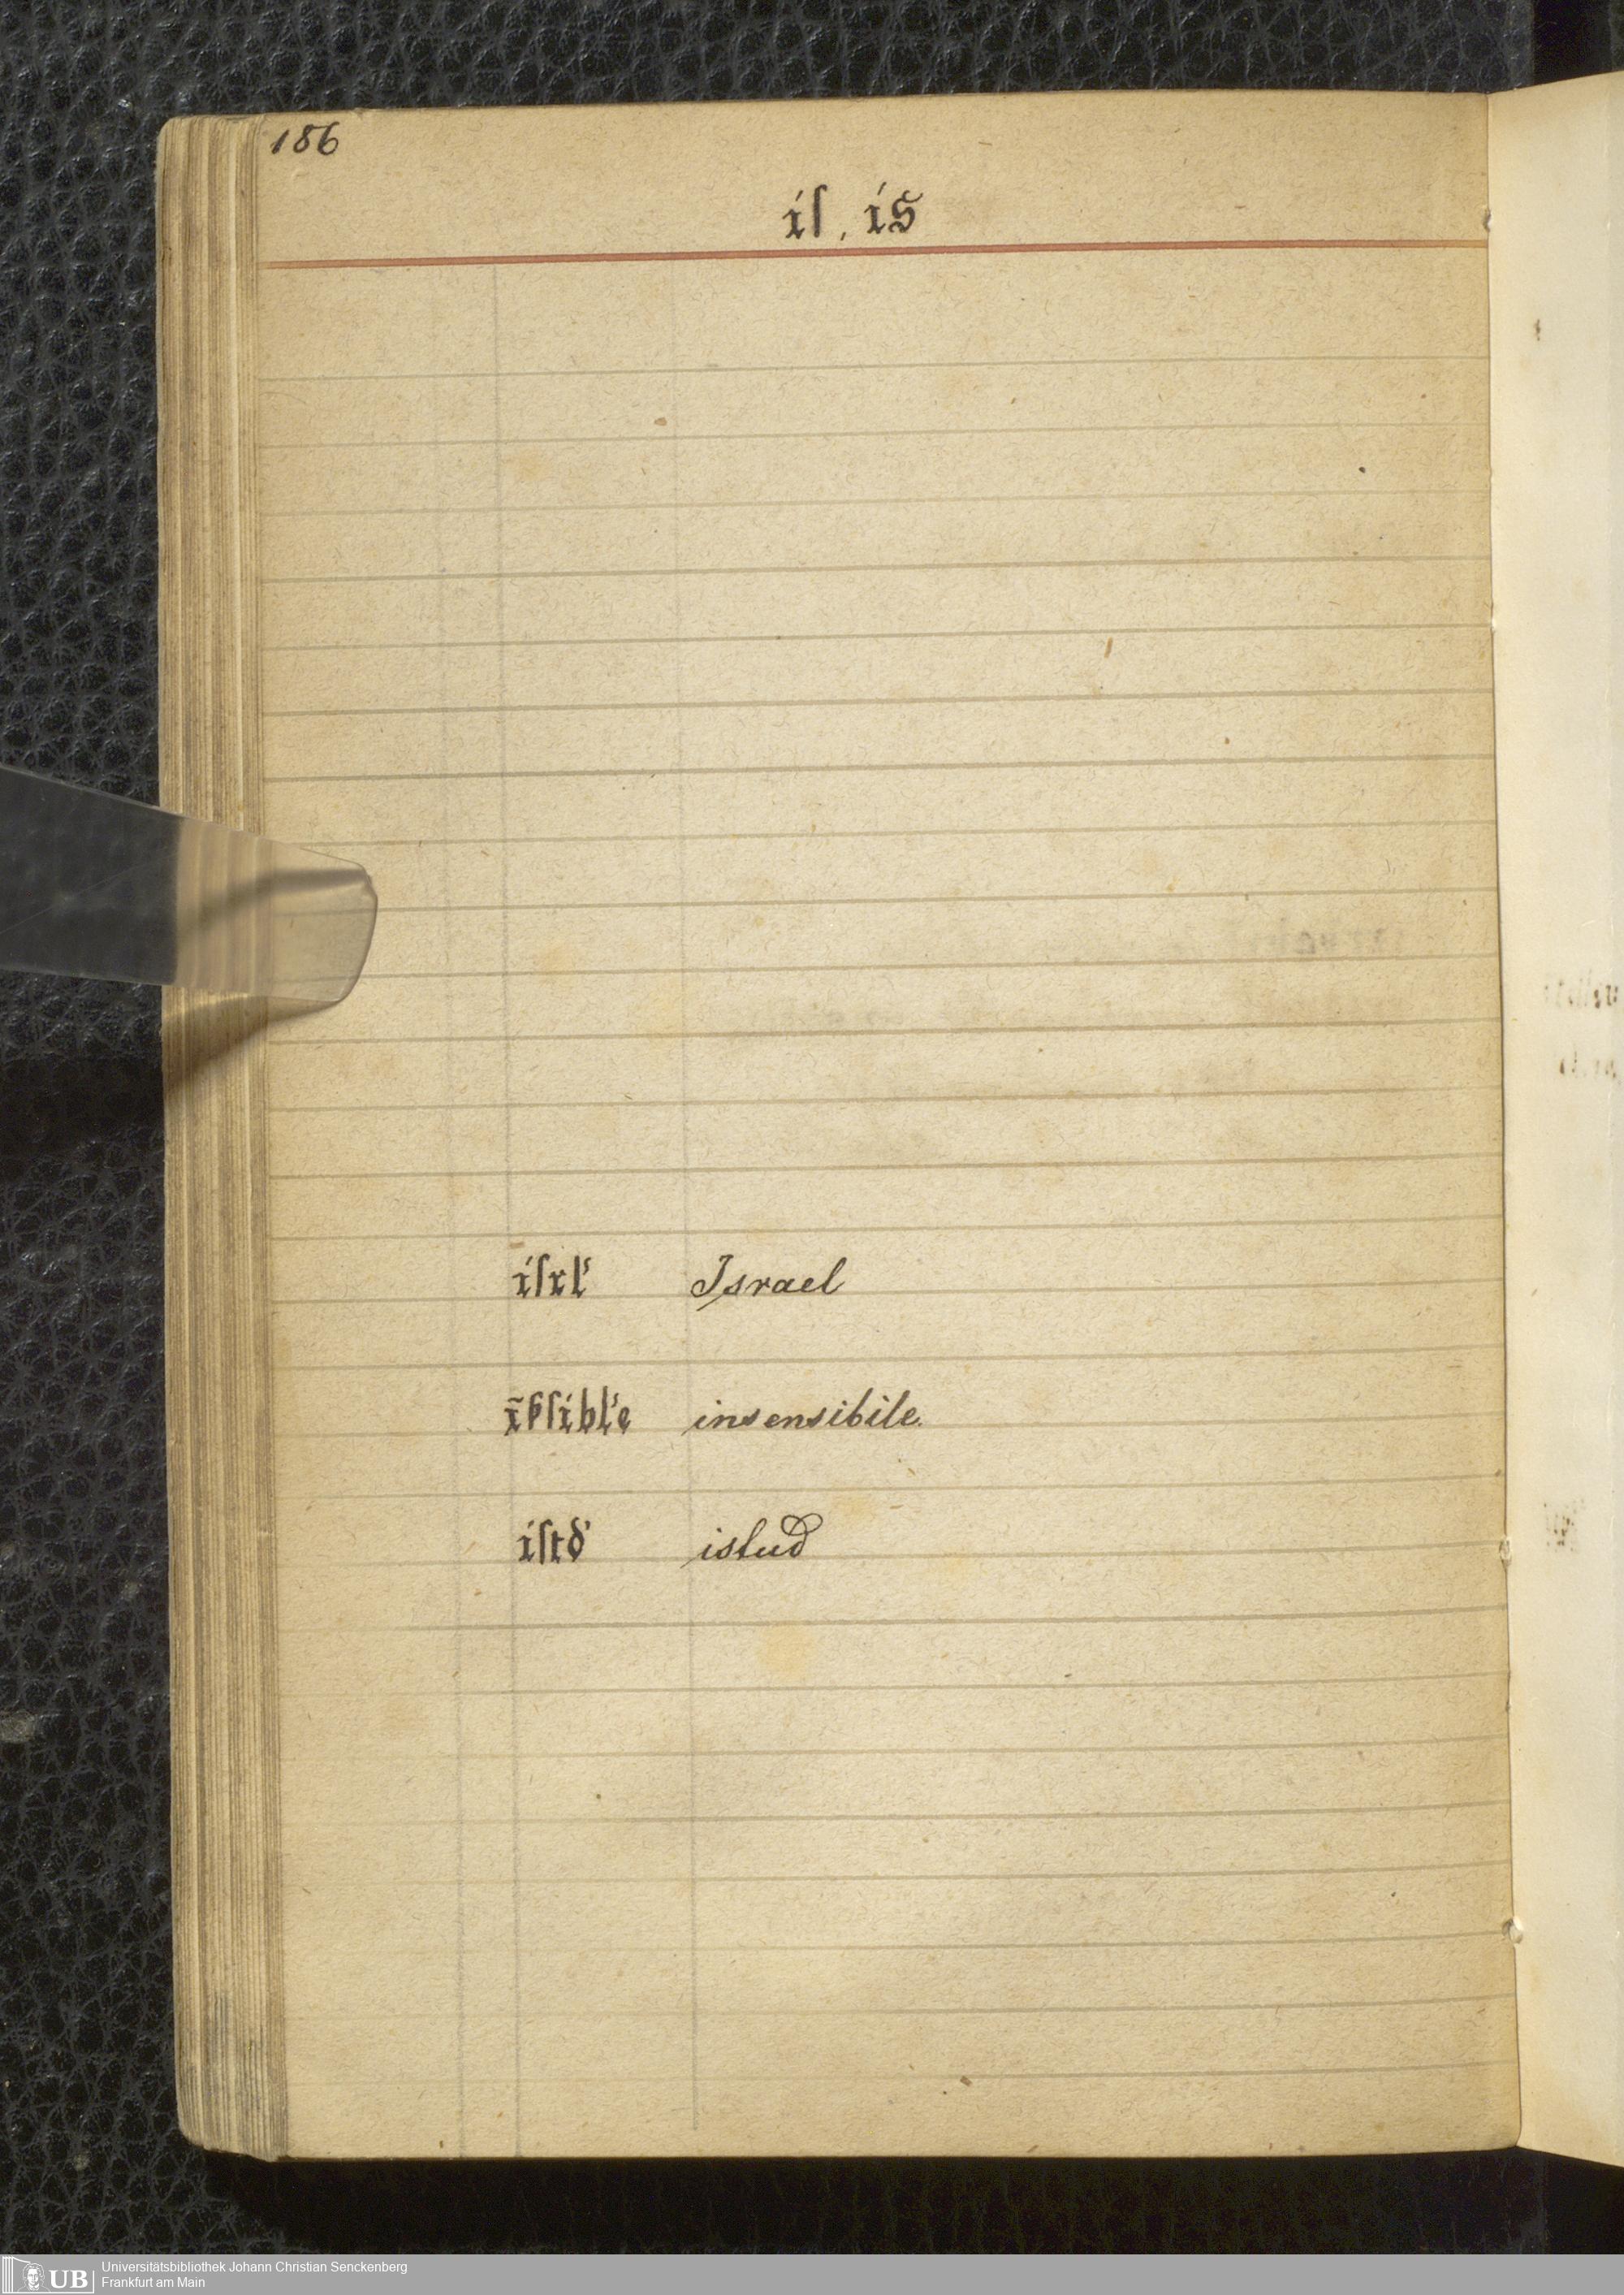 186
iſ, is
iſrl' Israel
ĩſſibl'e insensibile.
iſtd' istud
UB Universitätsbibliothek Johann Christian Senckenberg
Frankfurt am Main